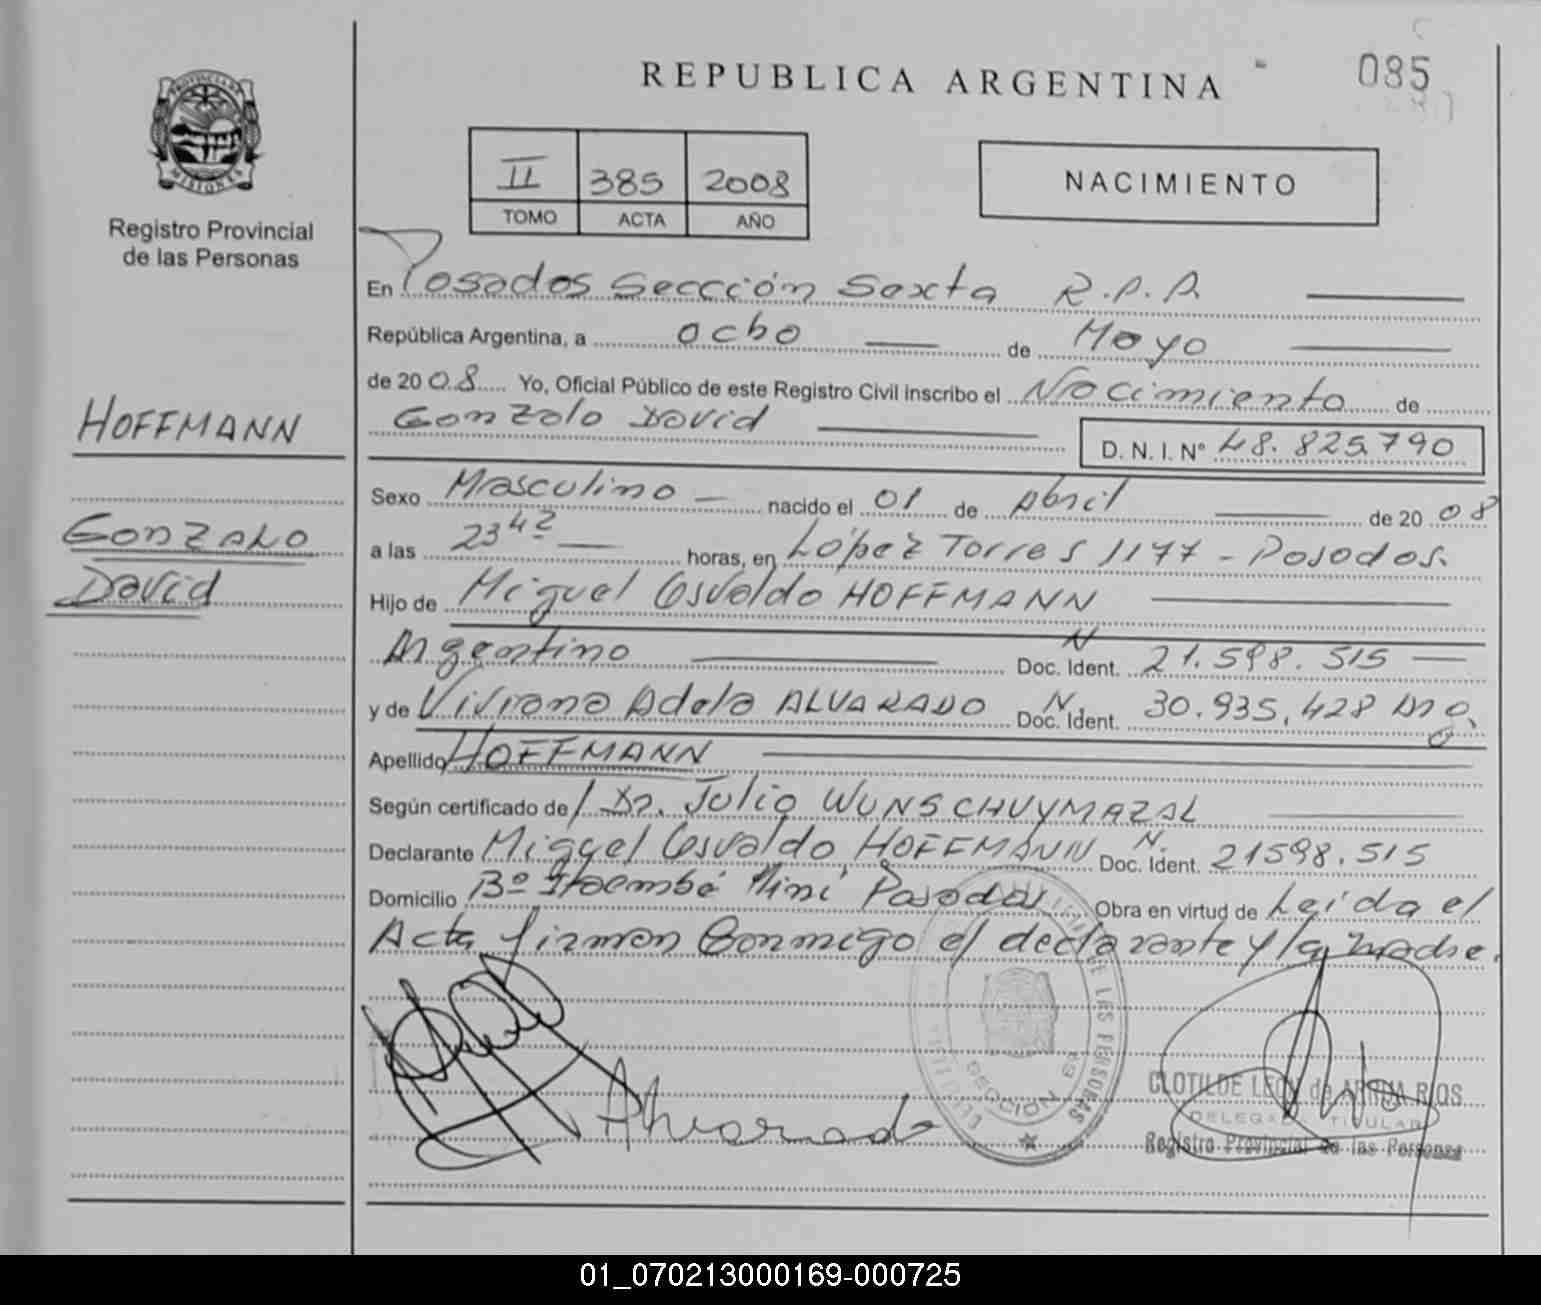 REPUBLICA ARGENTINA
085
PROVINCIA DE
MISIONES
Registro Provincial
de las Personas
II 385 2008
TOMO ACTA AÑO
NACIMIENTO
En Posadas Sección Sexta R.P.P.
República Argentina, a ocho de Mayo
de 2008 Yo, Oficial Público de este Registro Civil inscribo el Nacimiento de
Gonzalo David
D. N. I. Nº 48.825.790
HOFFMANN
Gonzalo
David
Sexo Masculino nacido el 01 de Abril de 2008
a las 23 42 horas, en López Torres 1177 - Posadas.
Hijo de Miguel Osvaldo HOFFMANN
Argentino Doc. Ident. N 21.598.515
y de Viviana Adela ALVARADO Doc. Ident. N. 30.935.428 Arg.
Apellido HOFFMANN
Según certificado de Dr. Julio WUNSCHUYMAZAL
Declarante Miguel Osvaldo HOFFMANN Doc. Ident. N. 21598.515
Domicilio Bº Itaembé Miní Posadas Obra en virtud de Leída el
Acta firman Conmigo el declarante y la madre.
Alvarado
DE LAS PERSONAS
SECCION 6ª
CLOTILDE LEONY de ARRUA RIOS
DELEGADA TITULAR
Registro Provincial de las Personas
01_070213000169-000725